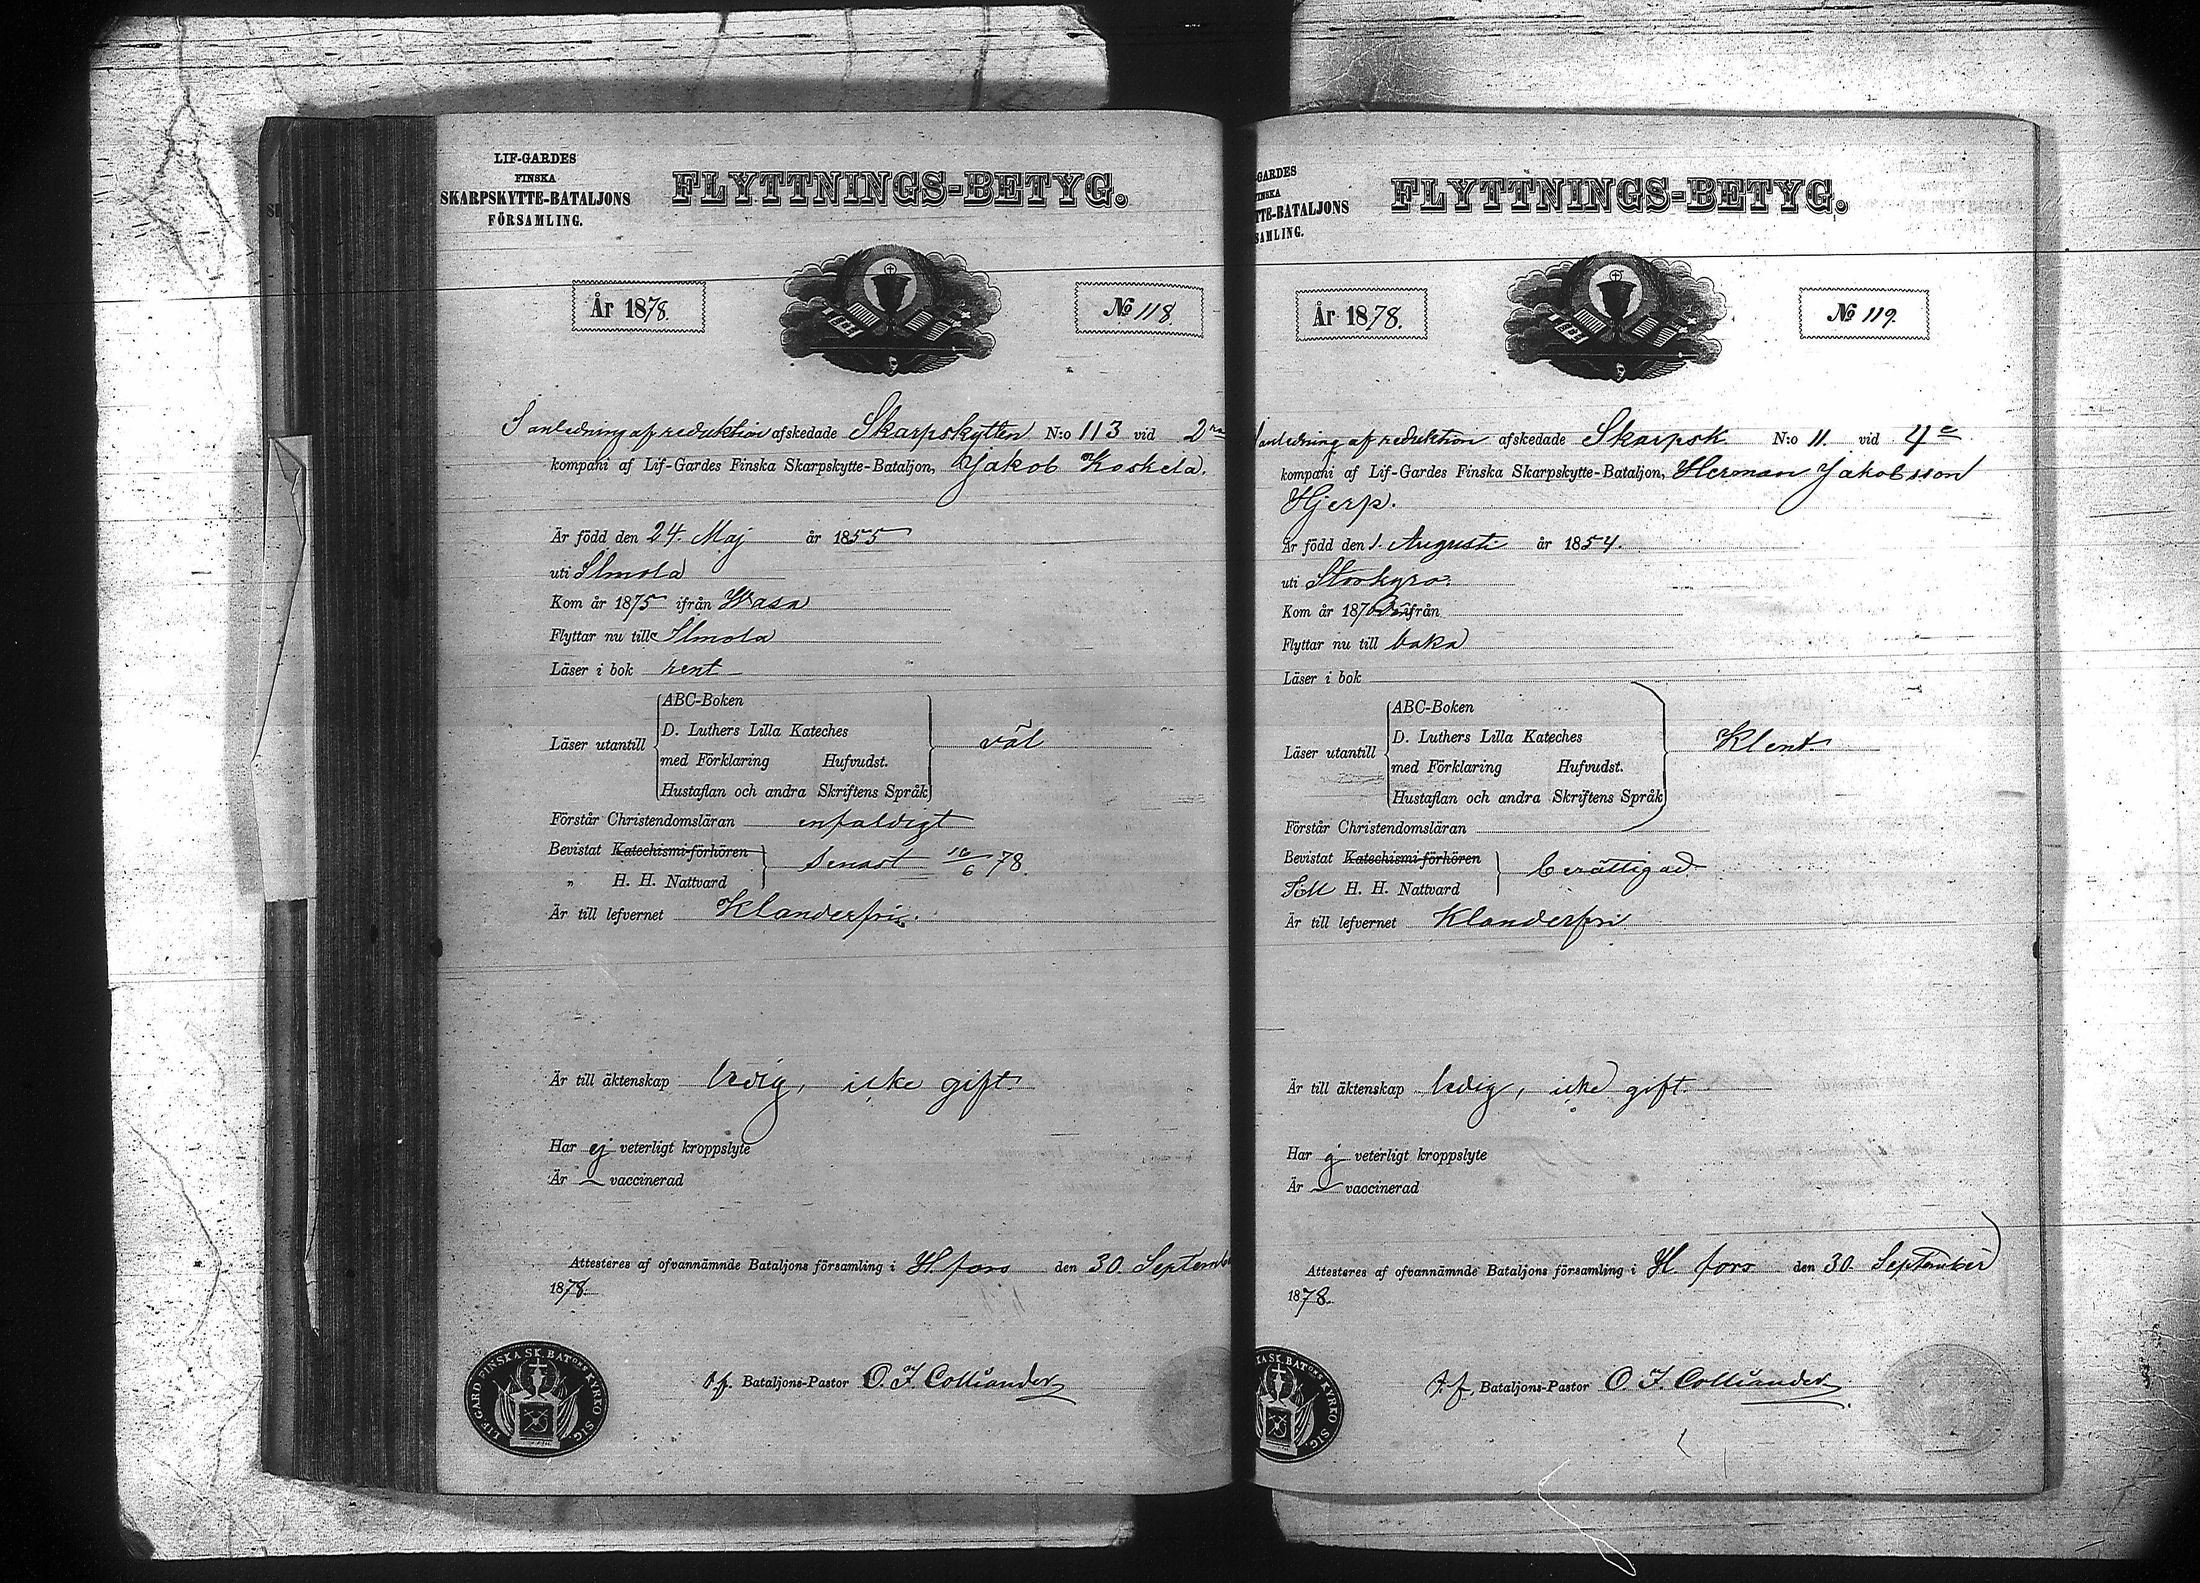 LIF-GARDES
FINSKA
SKARPSKYTTE-BATALJONS
FÖRSAMLING.
FLYTTNINGS-BETYG.
År 1878.
No 118.
I anledning af reduktion afskedade Skarpskytten N:o 113 vid 2ra
kompani af Lif-Gardes Finska Skarpskytte-Bataljon, Jakob Koskela.
Är född den 24. Maj år 1855
uti Ilmola
Kom år 1875 ifrån Wasa
Flyttar nu till Ilmola
Läser i bok rent
ABC-Boken
D. Luthers Lilla Kateches
Läser utantill väl
med Förklaring Hufvudst.
Hustaflan och andra Skriftens Språk
Förstår Christendomsläran enfaldigt
Bevistat Katechismi-förhören senast 16/6 78.
„ H. H. Nattvard
Är till lefvernet Klanderfri.
Är till äktenskap ledig, icke gift
Har ej veterligt kroppslyte
Är vaccinerad
Attesteres af ofvannämnde Bataljons församling i H. fors den 30. Septembe
1878.
LIF. GARD FINSKA SK. BATONS KYRKO SIG.
t.f. Bataljons-Pastor O. F. Colliander
GARDES
INSKA
TTE-BATALJONS
SAMLING.
FLYTTNINGS-BETYG.
År 1878.
No 119.
I anledning af reduktion afskedade Skarpsk. N:o 11. vid 4e
kompani af Lif-Gardes Finska Skarpskytte-Bataljon, Herman Jakobsson
Hjerp.
Är född den 1. Augusti år 1854.
uti Storkyro.
Kom år 187 ifrån
Flyttar nu till baka
Läser i bok
ABC-Boken
D. Luthers Lilla Kateches
Läser utantill Klent
med Förklaring Hufvudst.
Hustaflan och andra Skriftens Språk
Förstår Christendomsläran
Bevistat Katechismi-förhören berättigad
Till H. H. Nattvard
Är till lefvernet Klanderfri
Är till äktenskap ledig, icke gift.
Har ej veterligt kroppslyte
Är vaccinerad
Attesteres af ofvannämnde Bataljons församling i H. fors den 30. September
1878.
KA SK. BATONS KYRKO SIG.
t.f. Bataljons-Pastor O. F. Colliander